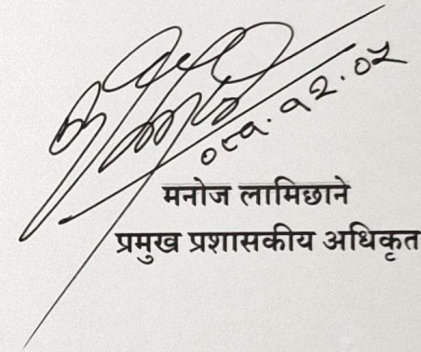 ०८१.१२.०२
मनोज लामिछाने
प्रमुख प्रशासकीय अधिकृत